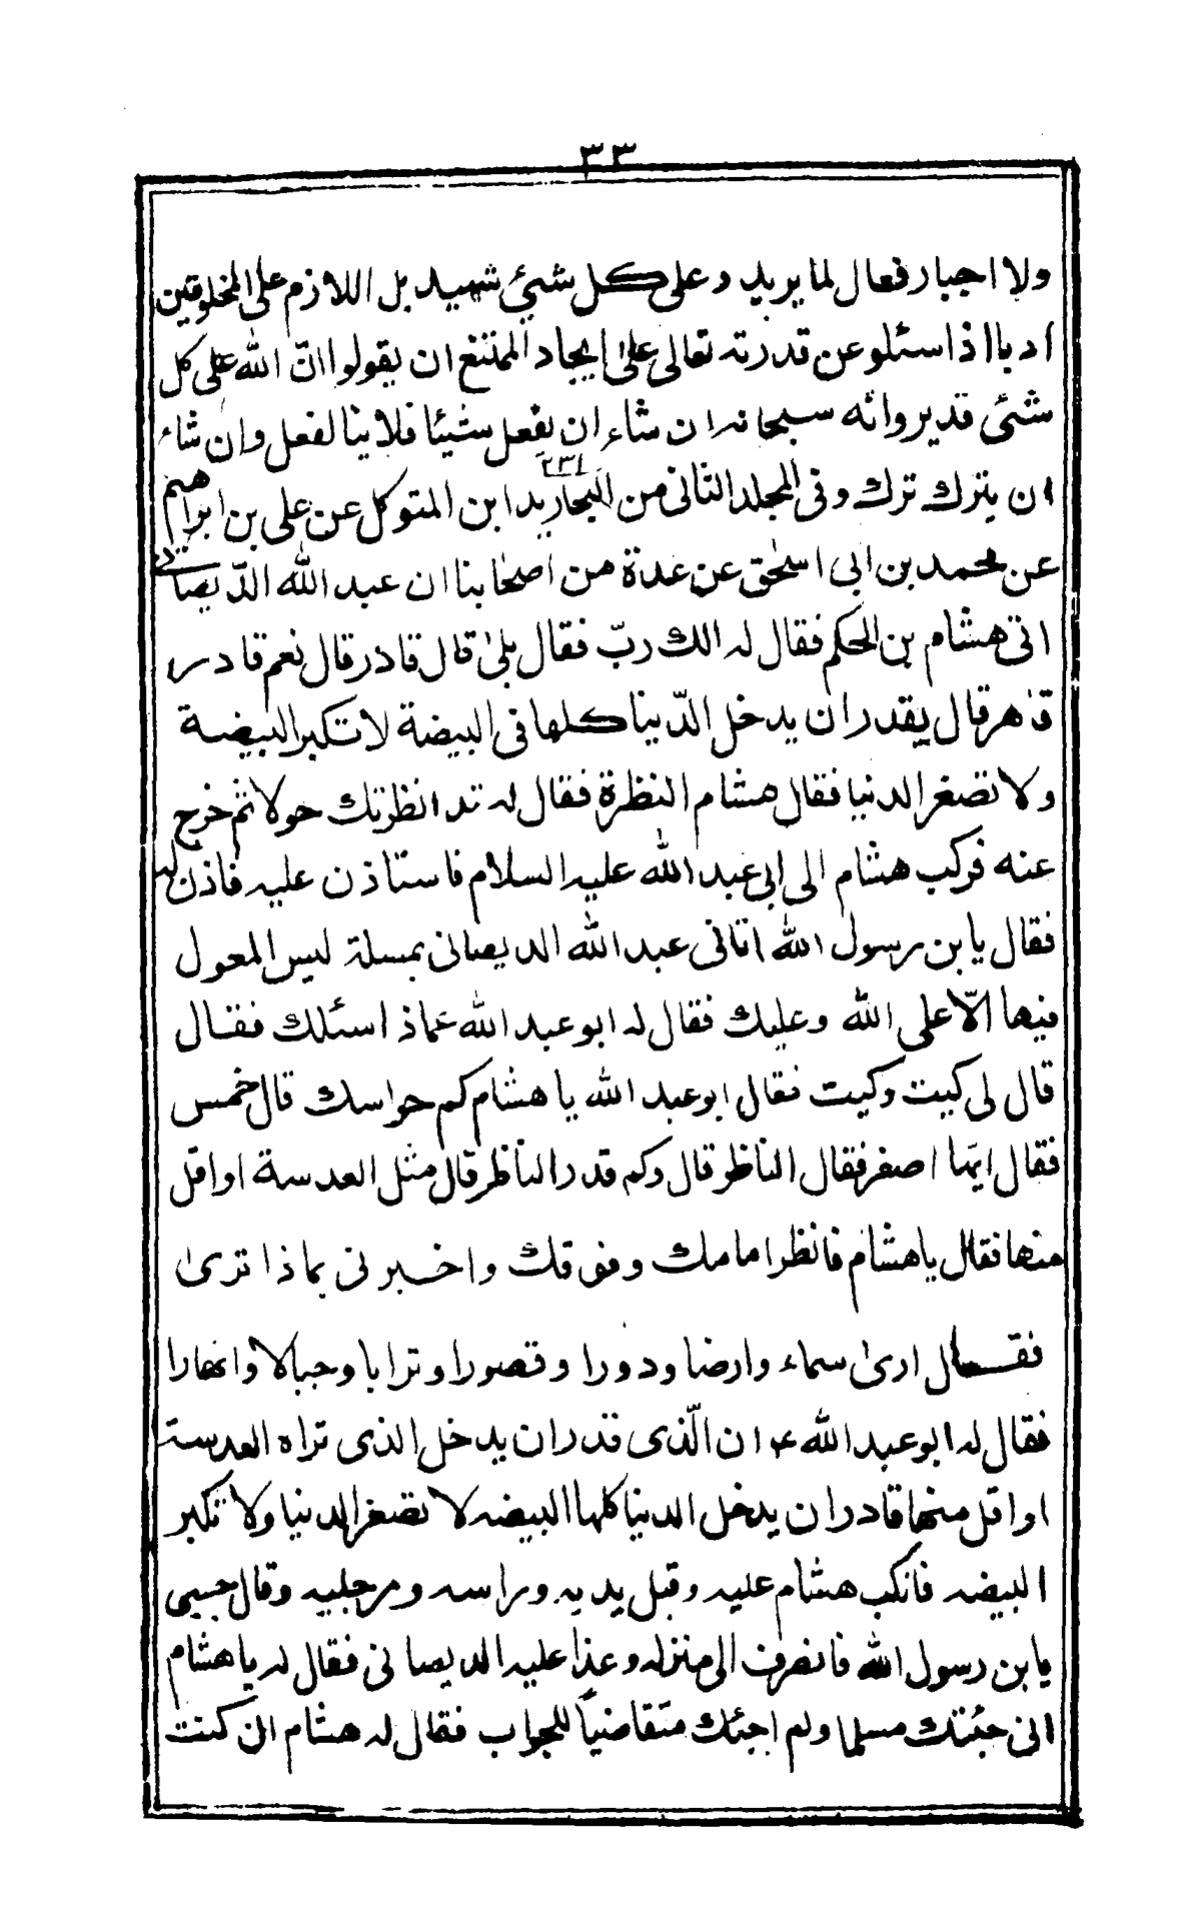 ٣٣
ولا اجبار فعال لما يريد وعلى كل شيئ شهيد بل اللازم على المخلوقين
ادبا اذا سئلو عن قدرته تعالى على ايجاد الممتنع ان يقولوا انّ الله على كل
شئى قدير وانّه سبحانه ان شاء ان يفعل شيئا فلا ينا لفعل وان شاء
٢٣١
ان يترك ترك وفى المجلد الثانى من البحار يد ابن المتوكل عن على بن ابراهيم
عن محمد بن ابى اسحٰق عن عدة من اصحابنا ان عبد الله الدّيصانى
اتى هشام بن الحكم فقال له الك ربّ فقال بلىٰ قال قادر قال نعم قادر
قاهر قال يقدر ان يدخل الدّنيا كلها فى البيضة لا تكبر البيضة
ولا تصغر الدنيا فقال هشام النظرة فقال له قد انظرتك حولا ثم خرج
عنه فركب هشام الى ابى عبد الله عليه السلام فاستاذن عليه فاذن له
فقال يا بن رسول الله اتانى عبد الله الديصانى بمسلة ليس المعول
فيها الّا على الله وعليك فقال له ابو عبد الله عماذ اسئلك فقال
قال لى كيت وكيت فقال ابو عبد الله يا هشام كم حواسك قال خمس
فقال ايّها اصغر فقال الناظر قال وكم قدر الناظر قال مثل العدسة او اقل
منها فقال يا هشام فانظر امامك وفوقك واخبرنى بماذا ترىٰ
فقال ارىٰ سماء وارضا ودورا وقصورا وترابا وجبالا وانهارا
فقال له ابو عبد الله ع ان الّذى قدر ان يدخل الذى تراه العدسة
او اقل منها قادر ان يدخل الدنيا كلها البيضه لا تصغر الدنيا ولا تكبر
البيضه فانكب هشام عليه وقبل يديه وراسه ورجليه وقال حسبى
يا بن رسول الله فانصرف الى منزله وغدا عليه الديصانى فقال له يا هشام
انى جئتك مسلما ولم اجئك متقاضياً للجواب فقال له هشام ان كنت